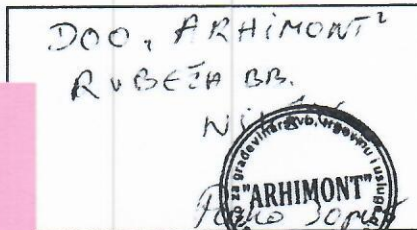 DOO "ARHIMONT"
RUBEŽA BB.
za građevinarstvo, trgovinu i usluge
"ARHIMONT"